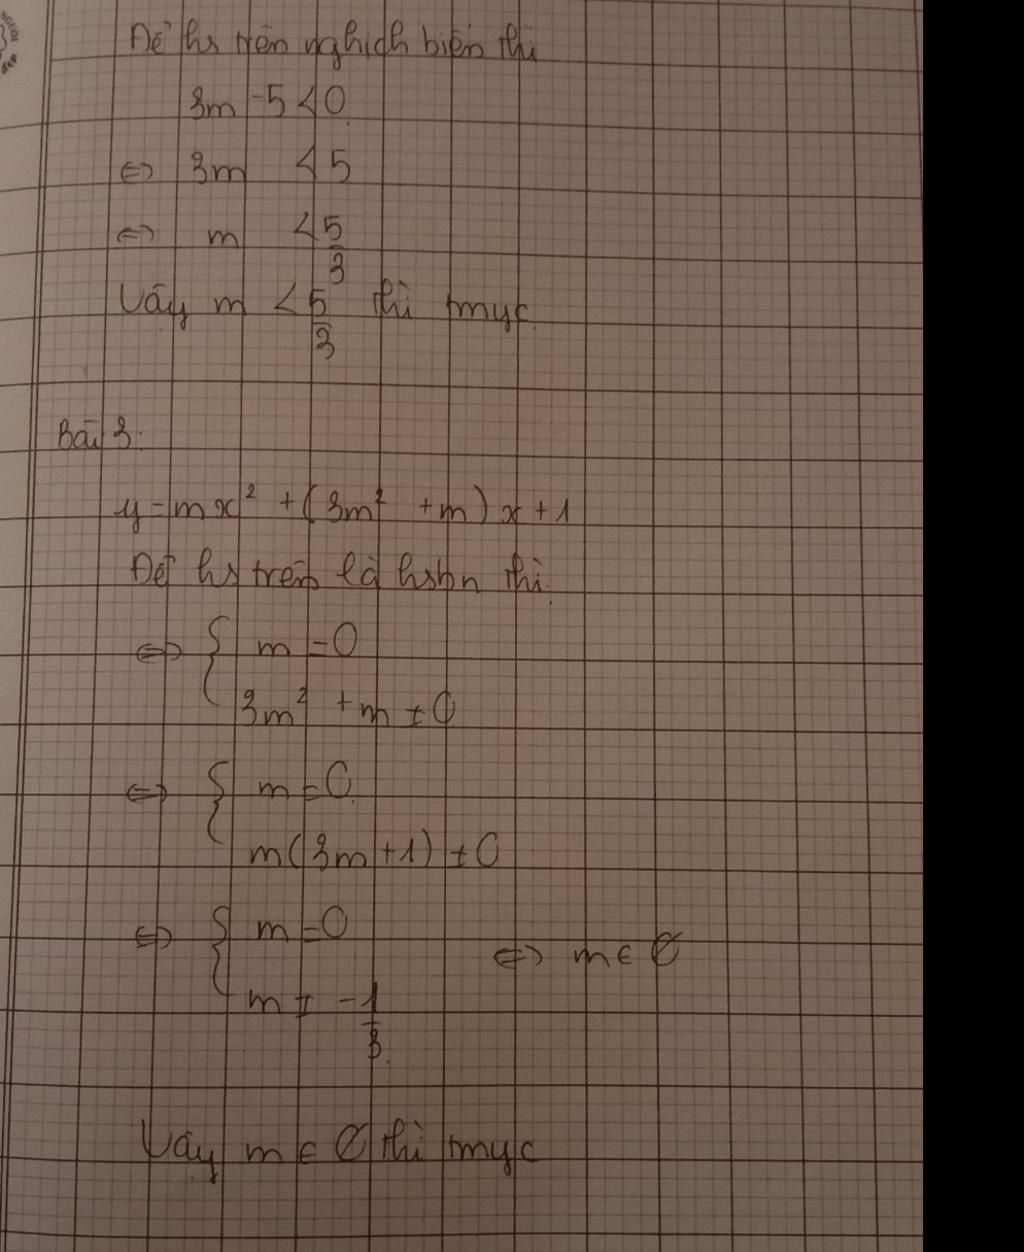 Để hs trên nghịch biến thì
3m - 5 < 0
⇔ 3m < 5
⇔ m < 5/3
Vậy m < 5/3 thì tmyc
Bài 3:
y = mx² + (3m² + m)x + 1
Để hs trên là hsbn thì
⇔ { m = 0
3m² + m ≠ 0
⇔ { m = 0
m(3m+1) ≠ 0
⇔ { m = 0 ⇔ m ∈ ∅
m ≠ -1/3
Vậy m ∈ ∅ thì tmyc